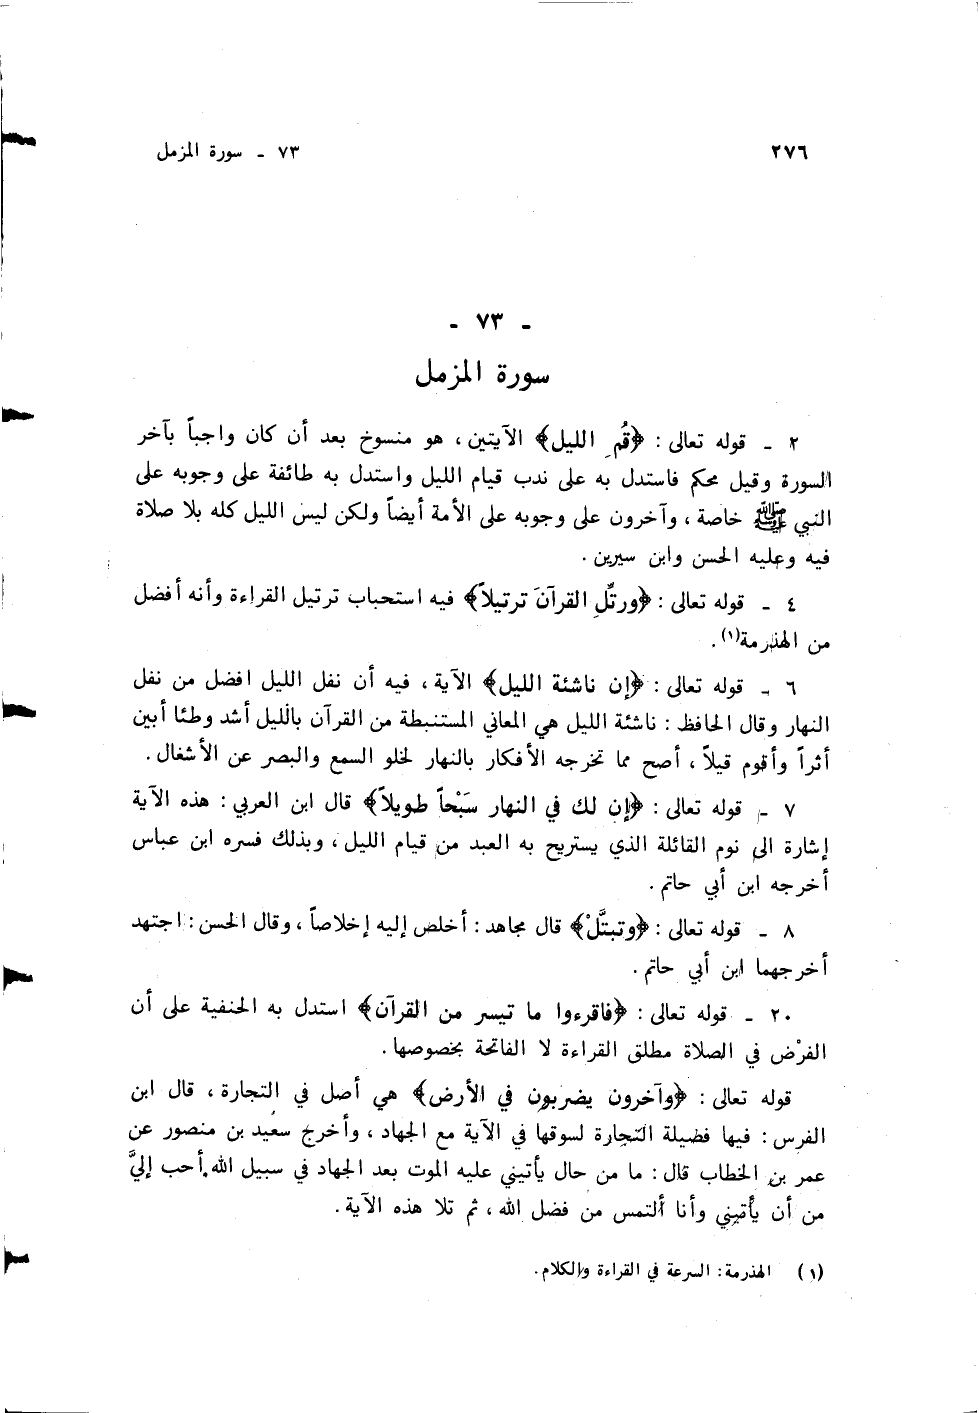 ٢٧٦
٧٣ - سورة المزمل
- ٧٣ -
سورة المزمل
٢ - قوله تعالى : ﴿قُم الليل﴾ الآيتين ، هو منسوخ بعد أن كان واجباً بآخر
السورة وقيل محكم فاستدل به على ندب قيام الليل واستدل به طائفة على وجوبه على
النبي ﷺ خاصة ، وآخرون على وجوبه على الأمة أيضاً ولكن ليس الليل كله بلا صلاة
فيه وعليه الحسن وابن سيرين .
٤ - قوله تعالى : ﴿ورتِّلِ القرآنَ ترتيلاً﴾ فيه استحباب ترتيل القراءة وأنه أفضل
من الهذرمة(١).
٦ - قوله تعالى : ﴿إن ناشئة الليل﴾ الآية ، فيه أن نفل الليل افضل من نفل
النهار وقال الحافظ : ناشئة الليل هي المعاني المستنبطة من القرآن بالليل أشد وطئا أبين
أثراً وأقوم قيلاً ، أصح مما تخرجه الأفكار بالنهار لخلو السمع والبصر عن الأشغال .
٧ - قوله تعالى : ﴿إن لك في النهار سَبْحاً طويلاً﴾ قال ابن العربي : هذه الآية
إشارة الى نوم القائلة الذي يستريح به العبد من قيام الليل ، وبذلك فسره ابن عباس
أخرجه ابن أبي حاتم .
٨ - قوله تعالى : ﴿وتبتَّلْ﴾ قال مجاهد : أخلص إليه إخلاصاً ، وقال الحسن : اجتهد
أخرجهما ابن أبي حاتم .
٢٠ - قوله تعالى : ﴿فاقرءوا ما تيسر من القرآن﴾ استدل به الحنفية على أن
الفرْض في الصلاة مطلق القراءة لا الفاتحة بخصوصها .
قوله تعالى : ﴿وآخرون يضربون في الأرض﴾ هي أصل في التجارة ، قال ابن
الفرس : فيها فضيلة التجارة لسوقها في الآية مع الجهاد ، وأخرج سعيد بن منصور عن
عمر بن الخطاب قال : ما من حال يأتيني عليه الموت بعد الجهاد في سبيل الله أحب إليَّ
من أن يأتيني وأنا ألتمس من فضل الله ، ثم تلا هذه الآية .
(١) الهذرمة : السرعة في القراءة والكلام .